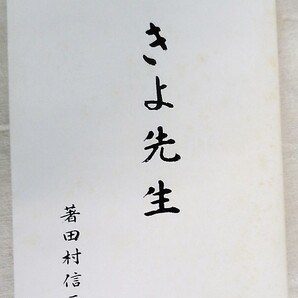 きよ先生
著田村信